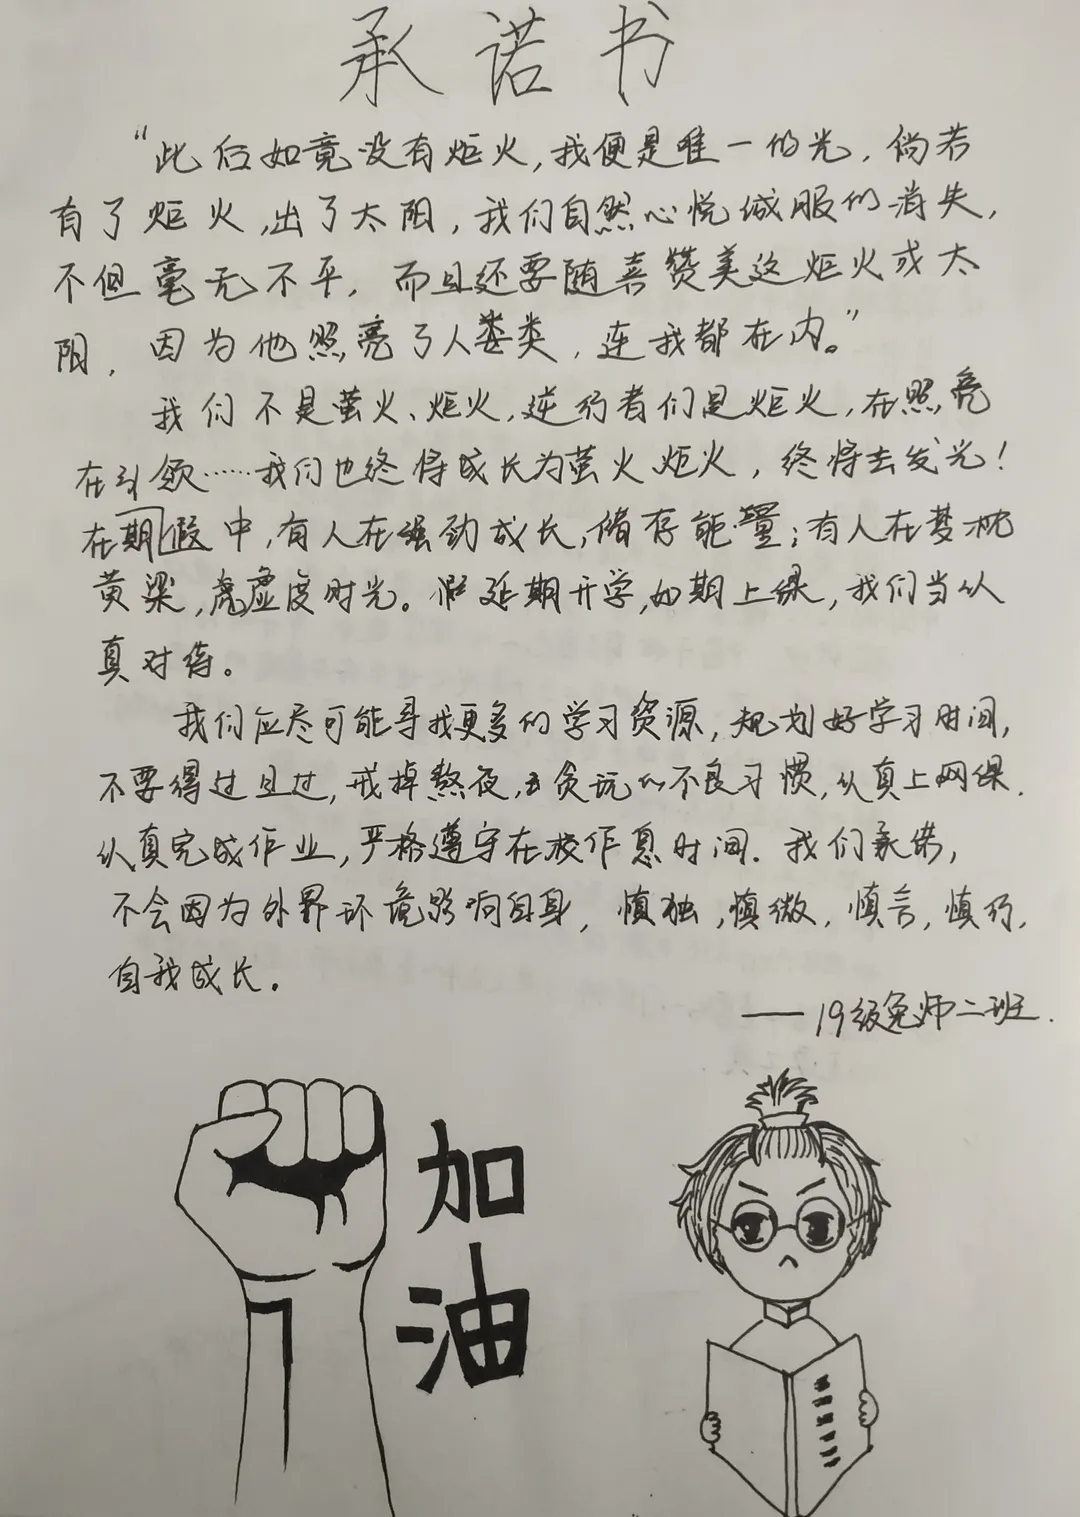 承诺书
“此后如竟没有炬火，我便是唯一的光，倘若
有了炬火，出了太阳，我们自然心悦诚服的消失，
不但毫无不平，而且还要随喜赞美这炬火或太
阳，因为他照亮了人类，连我都在内。”
我们不是萤火、炬火，逆行者们是炬火，在照亮
在引领……我们也终将成长为萤火炬火，终将去发光！
在期假中，有人在强劲成长，储存能量；有人在梦枕
黄粱，虚度时光。延期开学，如期上课，我们当认
真对待。
我们应尽可能寻找更多的学习资源，规划好学习时间，
不要得过且过，戒掉熬夜，贪玩的不良习惯，认真上网课.
认真完成作业，严格遵守在校作息时间.我们承诺，
不会因为外界环境影响自身，慎独，慎微，慎言，慎行.
自我成长。
——19级免师二班.
加
油